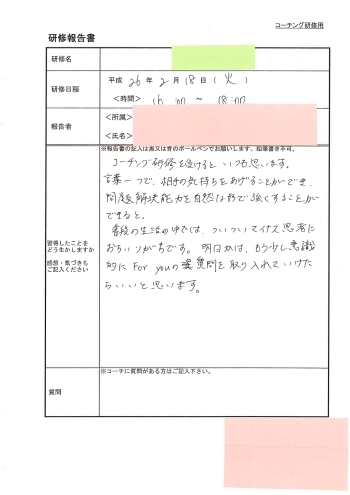 コーチング研修用
研修報告書
研修名
研修日程
平成 26年 2月 18日 ( 火 )
＜時間＞ 16:00 ～ 18:00
報告者
＜所属＞
＜氏名＞
※報告書の記入は黒又は青のボールペンでお願いします。鉛筆書き不可。
習得したことを
どう生かしますか
感想・気づきも
ご記入ください
コーチング研修を受けると いつも思います。
言葉一つで、相手の気持ちをあげることができ、
問題解決能力を自然な形で強くすることが
できると。
普段の生活の中では、ついついマイナス思考に
おちいりがちです。明日からは、もう少し意識
的に For youの質問を取り入れていけた
らいいと思います。
質問
※コーチに質問がある方はご記入下さい。